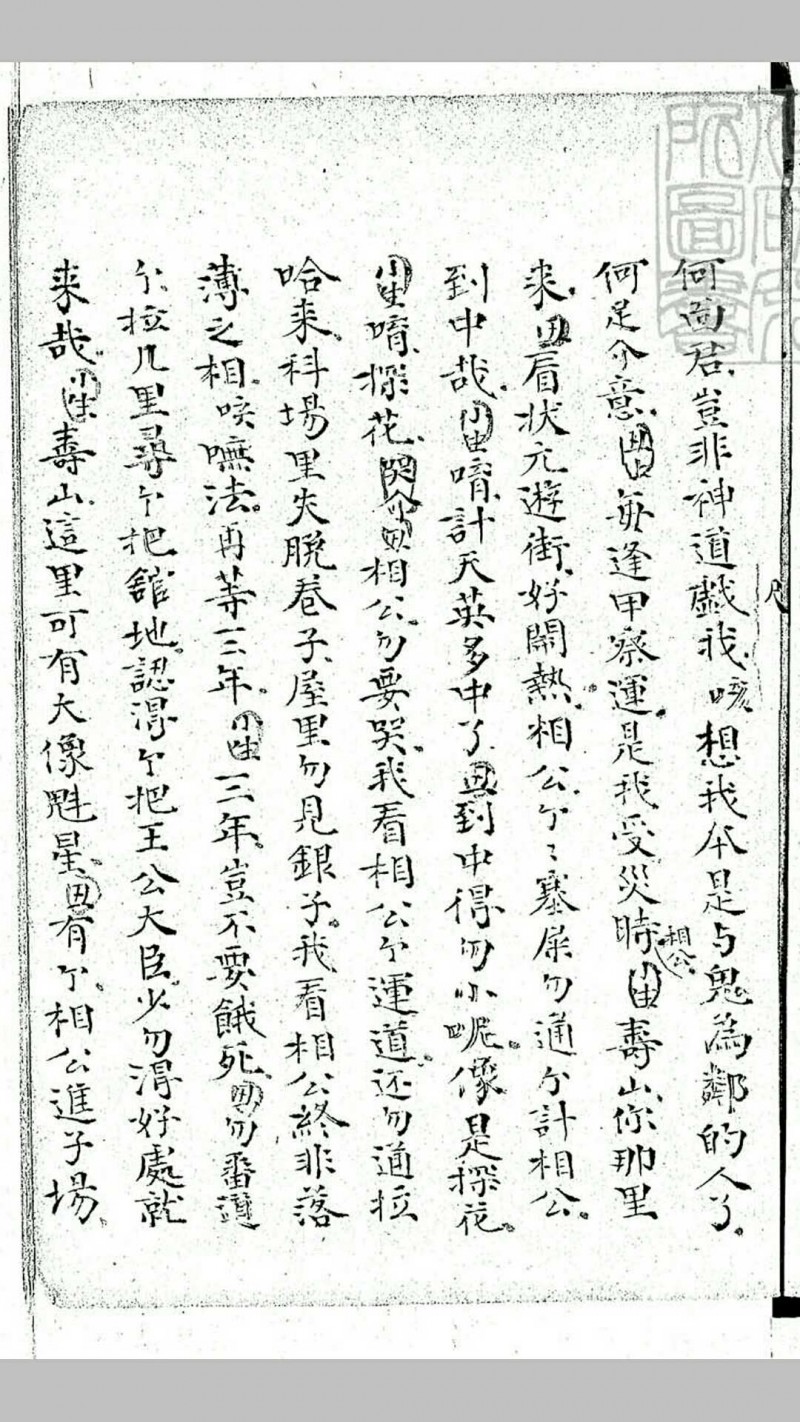 何啚君豈非神道戯我咳想我本是与鬼為鄰的人了
何足介意丑每逢甲寮運是我受災時相公小生壽山你那里
来丑看状元遊街好鬧熱相公个々塞屎勿通个計相公
到中哉小生唷計天英多中了丑到中得勿小呢像是探花
小生唷探花哭介丑相公勿要哭我看相公个運道还勿通拉
哈来科場里失脱卷子屋里勿見銀子我看相公終非落
薄之相咳嘸法再等三年小生三年豈不要餓死丑勿番道
个拉几里尋个把舘地認得个把王公大臣少勿得好處就
来哉小生壽山這里可有大像魁星丑有个相公進子場